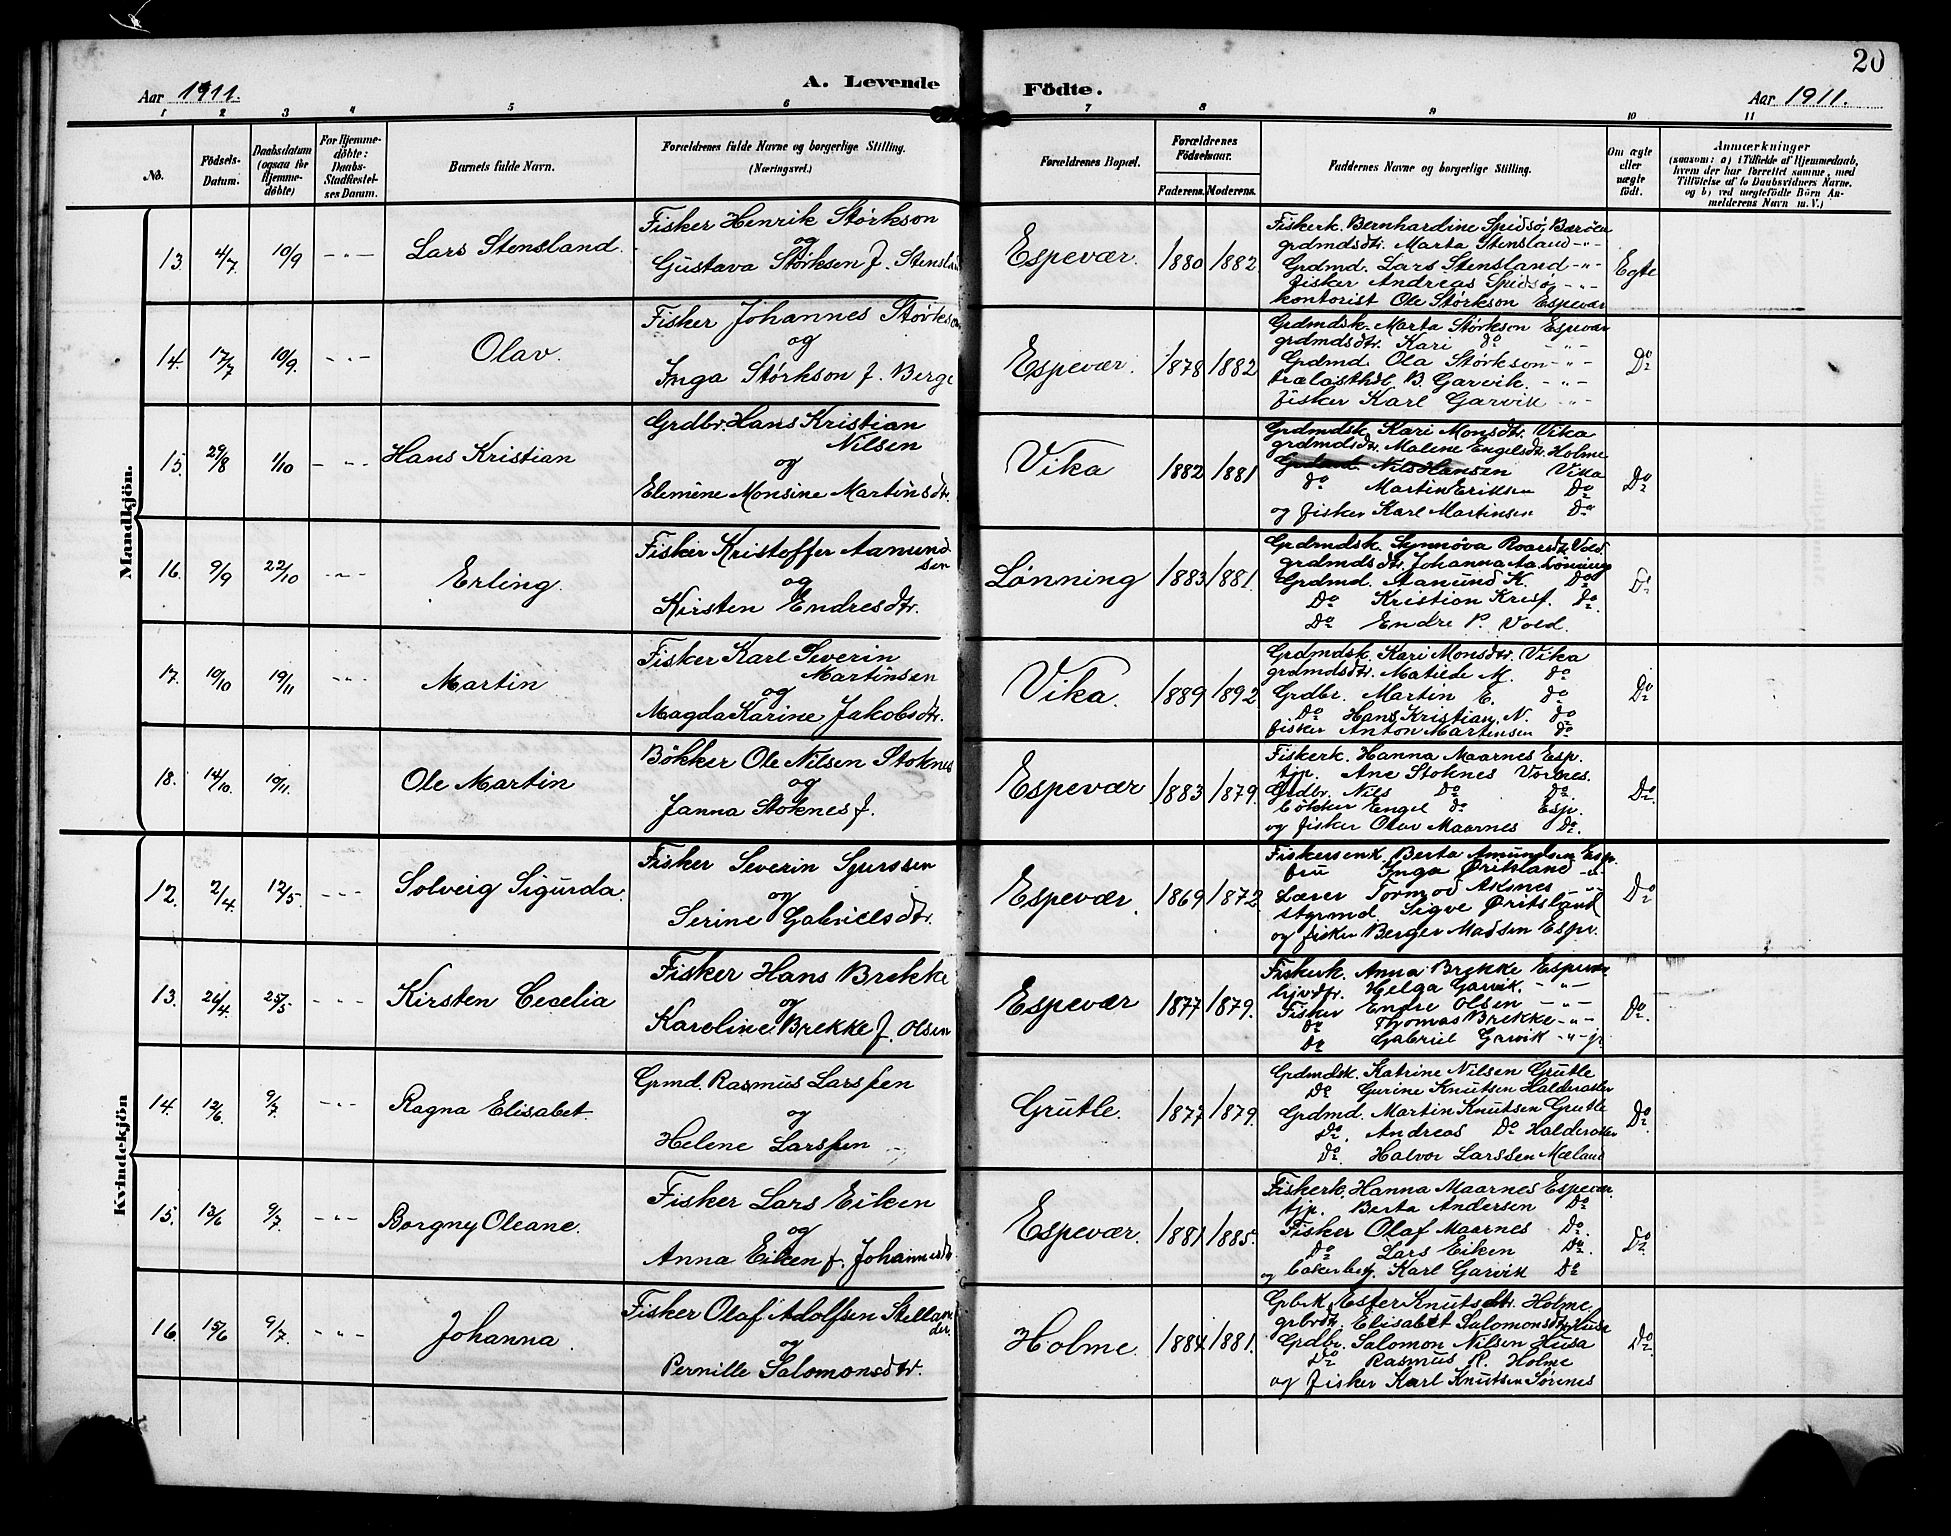 20
Aar 1911.
A. Levende
Fødte.
Aar 1911.
1 2 3 4 5 6 7 8 9 10 11
No.
Fødsels-
Datum.
Daabsdatum
(ogsaa for
Hjemme-
døbte)
For Hjemme-
døbte:
Daabs-
Stadfæstel-
ses Datum.
Barnets fulde Navn.
Forældrenes fulde Navne og borgerlige Stilling.
(Næringsvei.)
Forældrenes Bopæl.
Forældrenes
Fødselsaar.
Faderens. Moderens.
Faddernes Navne og borgerlige Stilling.
Om ægte
eller
uægte
født.
Anmærkninger
(saasom: a) i Tilfælde af Hjemmedaab,
hvem der har forrettet samme, med
Tilføielse af to Daabsvidners Navne.
og b) ved uægtefødte Børn An-
melderens Navn m. V.)
Mandkjön.
13. 4/7 10/9 - " - Lars Stensland.
Fisker Henrik Størkson
og
Gustava Størksen f. Stensla
Espevær. 1880 1882
Fiskerk. Bernhardine Spidsø, Barøen
grdmdsdtr. Marta Stensland - " -
Grdmd. Lars Stensland - " -
fisker Andreas Spidsø - " -
kontorist Ole Størkson Espevær
Egte
14. 17/7 10/9. - " - Olav.
Fisker Johannes Størkson
og
Inga Størkson f. Berge
Espevær. 1878 1882
Grdmdsk. Marta Størkson Espevær
grdmdsdtr. Kari do - " -
Grdmd. Ola Størkson - " -
B. Garvik. - " -
fisker Karl Garvik - " -
Do
15. 29/8 1/10 - " - Hans Kristian
Grdbr. Hans Kristian
Nilsen
og
Elemine Monsine Martinsdtr.
Vika 1882 1881
Grdmdsk. Kari Monsdtr. Vika
grdmdsdtr. Malene Engelsdtr. Holme
Grdmd. Nils Hansen Vika
do Martin Eriksen Do
og fisker Karl Martinsen Do
Do
16. 9/9 22/10 - " - Erling.
Fisker Kristoffer Aamund-
sen
og
Kirsten Endresdtr.
Lønning 1883 1881.
Grdmdsk. Synnøva Roarsdtr. Vold
grdmdsdtr. Johanna Aa. Lønning
Grdmd. Aamund K. Do
Do Kristian Krisf. Do.
Do Endre P. Vold.
Do
17. 10/10 19/11 - " - Martin
Fisker Karl Severin
Martinsen
og
Magda Karine Jakobsdtr.
Vika. 1889 1892
Grdmdsk. Kari Monsdtr. Vika
grdmdsdtr. Matilde M. do
Grdbr. Martin E. do
Do Hans Kristian N. do
fisker Anton Martensen do
Do
18. 14/10 19/11. Ole Martin
Bökker Ole Nilsen Stoknes
og
Janna Stoknes f.
Espevær 1883 1879.
Fiskerk. Hanna Maarnes Esp.
tjp. Ane Stoknes Vornes.
Grdbr. Nils Do Do.
bökker Engel do Esp.
og fisker Olav Maarnes Do.
Do.
Kvindekjön
12. 2/4. 12/5. - " - Solveig Sigurda.
Fisker Severin Sjurssen
og
Serine Gabrielsdtr.
Espevær. 1869 1872
Fiskersenk. Berta Amundsen Esp.
fru Inga Øritsland - " -
Lærer Tormod Aksnes - " -
styrmd. Sigve Øritsland
og fisker Berger Madsen Espv.
Do
13. 26/4. 25/5 - " - Kirsten Cecelia
Fisker Hans Brekke
og
Kareline Brekke f. Olsen
Espevær 1877 1879.
Fiskerk. Anna Brekke Espevær
Helga Garvik. - " -
Fisker Endre Olsen - " -
do Thomas Brekke - " -
Do Gabriel Garvik - " -
Do.
14. 12/6. 9/7. - " - Ragna Elisabet
Grmd. Rasmus Larssen
og
Helene Larssen
Grutle. 1877 1879.
Grdmdsk. Katrine Nilsen Grutle
Do Gurine Knutsen Halderaker
Grdmd. Martin Knutsen Grutle
Do. Andreas Do Halderaker
Do. Halvor Larssen Mæland
Do.
15. 13/6 9/7. - " - Borgny Oleane.
Fisker Lars Eiken
og
Anna Eiken f. Johannesdtr
Espevær. 1881 1885.
Fiskerk. Hanna Maarnes Espevær.
tjp. Berta Andersen Do
Fisker Olaf Maarnes Do.
Do Lars Eiken Do.
og Karl Garvik Do
Do.
16. 15/6 9/7. - " - Johanna.
Fisker Olaf Adolfsen
og
Pernille Salomonsdtr.
Holme. 1884 1881.
Grbrk. Ester Knutsdtr. Holme.
grbrdtr. Elisabet Salomonsdtr. Husa
Grdbr. Salomon Nilsen Husa
Do Rasmus R. Holme
og fisker Karl Knutsen Sørenes
Do.